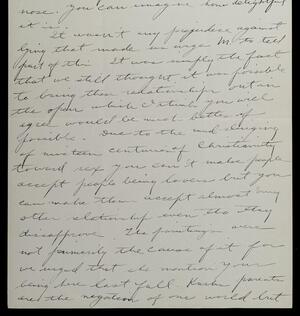 nose. You can imagine how delightful
it is.
It wasn't my prejudice against
lying that made us urge M. to tell
part of this. It was simply the fact
that we still thought it was possible
to bring their relationship out in
the open which I think you will
agree would be much better if
possible. Due to the mud slinging
of nineteen centuries of Christianity
toward sex you can't make people
accept people being lovers but you
can make them accept almost any
other relationship even tho they
disapprove. The paintings were
not primarily the cause of it for
we urged that she mention your
being here last fall. parents
are the negation of our world but